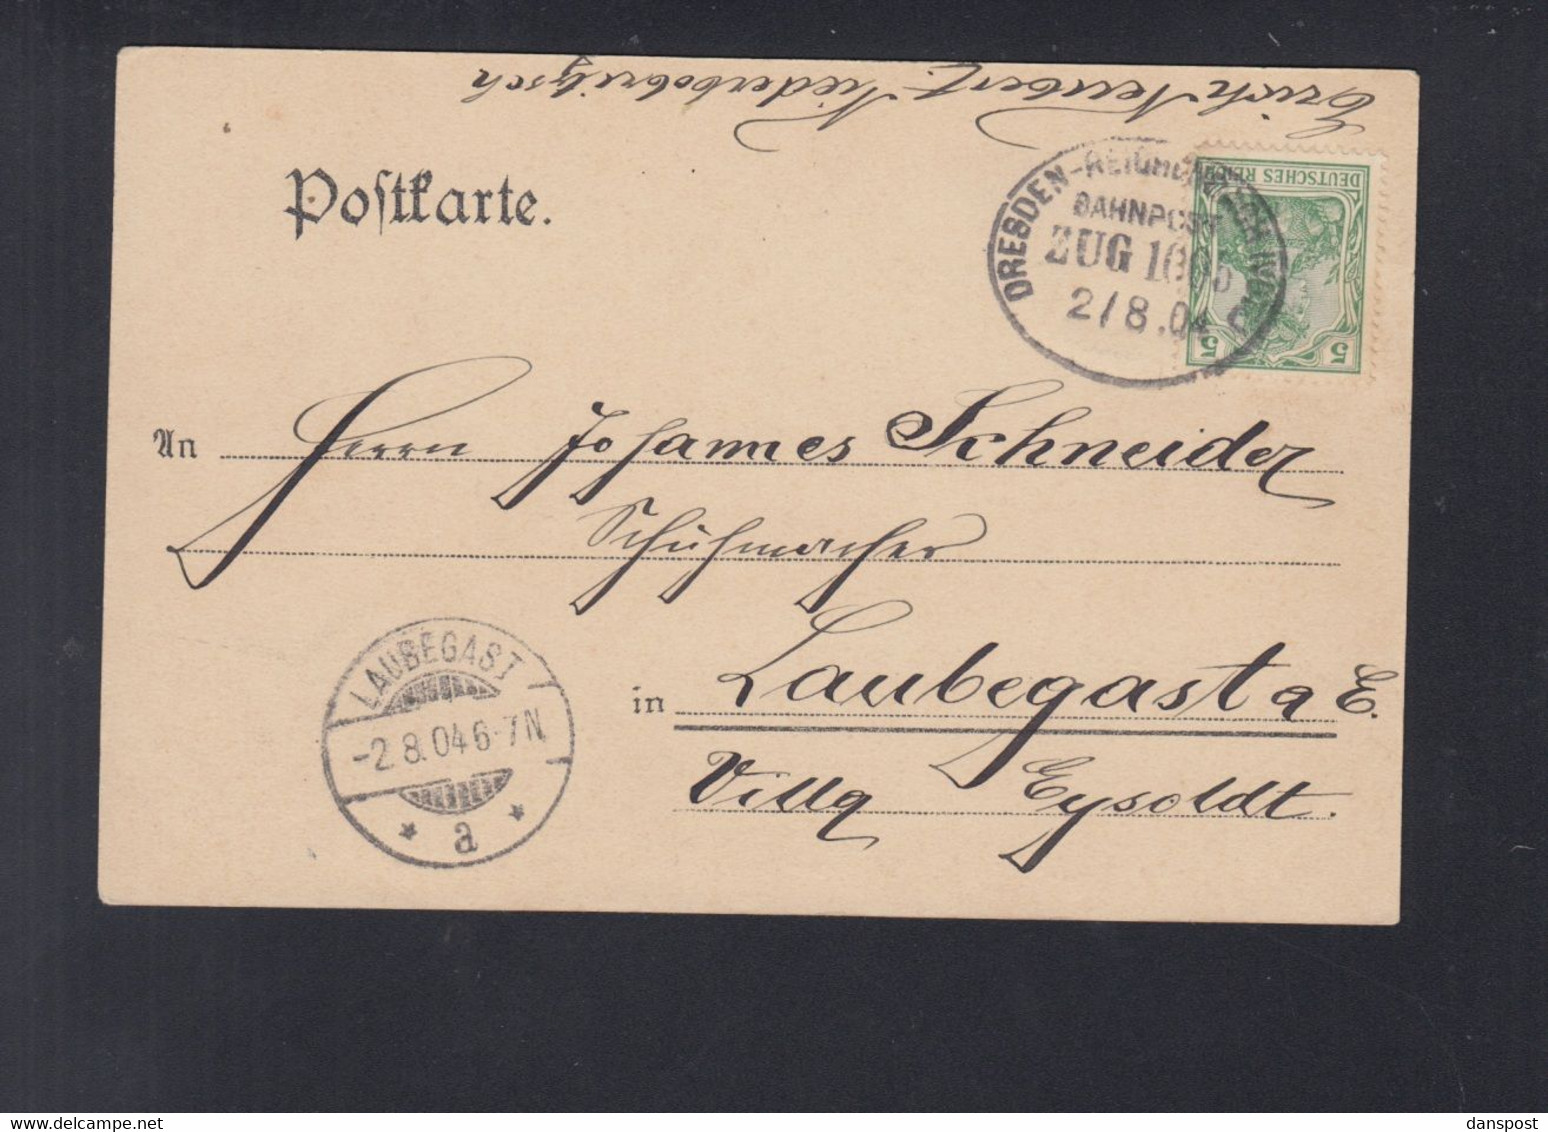 Erich Neubert. Niederbobritzsch
Postkarte.
DRESDEN-REICHENBACH
BAHNPOST
ZUG
2/8.04
DEUTSCHES REICH
5 5
An Herrn Johannes Schneider
Schuhmacher
in Laubegast a E.
Villa Eysoldt.
LAUBEGAST
-2.8.04 6-7N
* a *
danspost